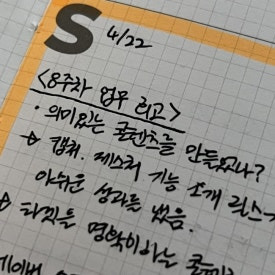 S
4/22
<8주차 업무 회고>
· 의미있는 콘텐츠를 만들었나?
→ 캡쳐. 제스쳐 기능 소개 릴스
아쉬운 성과를 냈음.
→ 타깃을 명확히하는